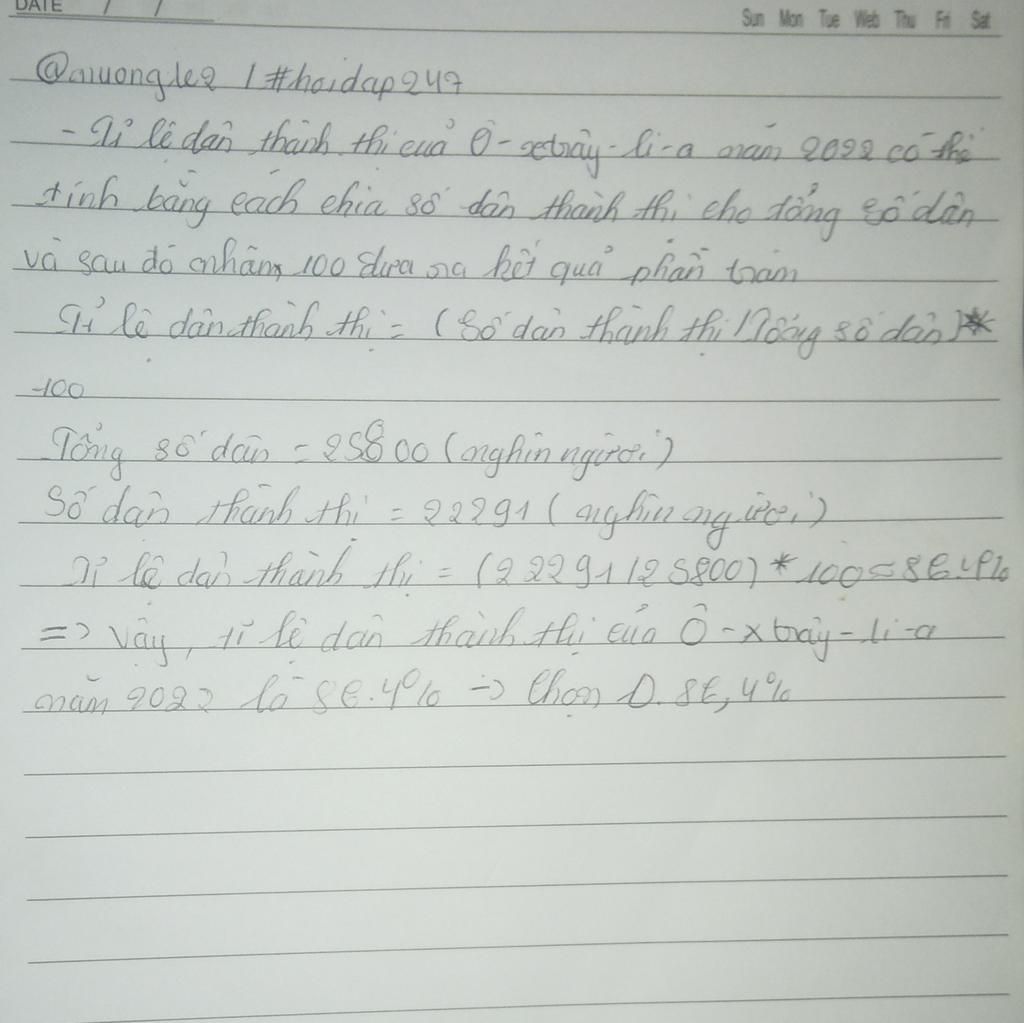 DATE / /
Sun Mon Tue Web Thu Fri Sat
@nuongle2 / #hoidap247
- Tỉ lệ dân thành thị của Ô-xtrây-li-a năm 2022 có thể
tính bằng cách chia số dân thành thị cho tổng số dân
và sau đó nhân 100 đưa ra kết quả phần trăm
Tỉ lệ dân thành thị = (Số dân thành thị / Tổng số dân) *
100
Tổng số dân = 25800 (nghìn người)
Số dân thành thị = 22291 (nghìn người)
Tỉ lệ dân thành thị = (22291/25800) * 100 = 86.4%
=> Vậy, tỉ lệ dân thành thị của Ô-xtrây-li-a
năm 2022 là 86.4% -> Chọn D. 86,4%